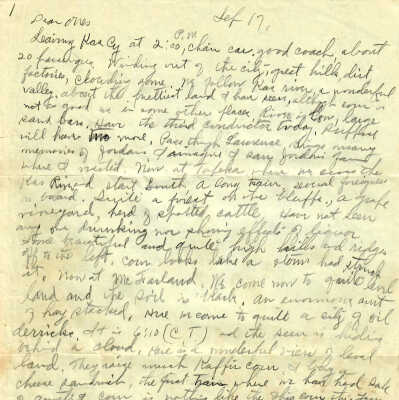 1
Sep 17,
Dear Ones
Leaving Kas Cy at 2:00, P.M. chair car, good coach, about
20 passengers. Winding out of the city, great hills, dist,
factories, crowding some. We follow Kas river, a wonderful
valley, about the prettiest land I have seen, although corn is
not as good as in some other places. River is low, large
sand bars. Have the third conductor today. Suppose
will have no more. Pass through Lawrence, brings many
memories of Jordans
where I visited. Now at Topeka where we cross the
Kas River and start South. A long train, several foreigners
on board. Quite a forest on the bluffs, a grape
vineyard, herd of spotted cattle. Have not seen
any one drinking nor showing effects of liquor
Some beautiful and quite high hills and ridges
off to the left. corn looks like a storm had struck
it. Now at McFarland. We come now to quite level
land and the soil is black. An enormous amt
of hay stacked. Here we come to quite a city of oil
derricks. It is 6:10 (C T) and the sun is hiding
behind a cloud. Here is a wonderful view of level
land. They raise much Kaffir corn. I
cheese sandwich, the first train where we have had